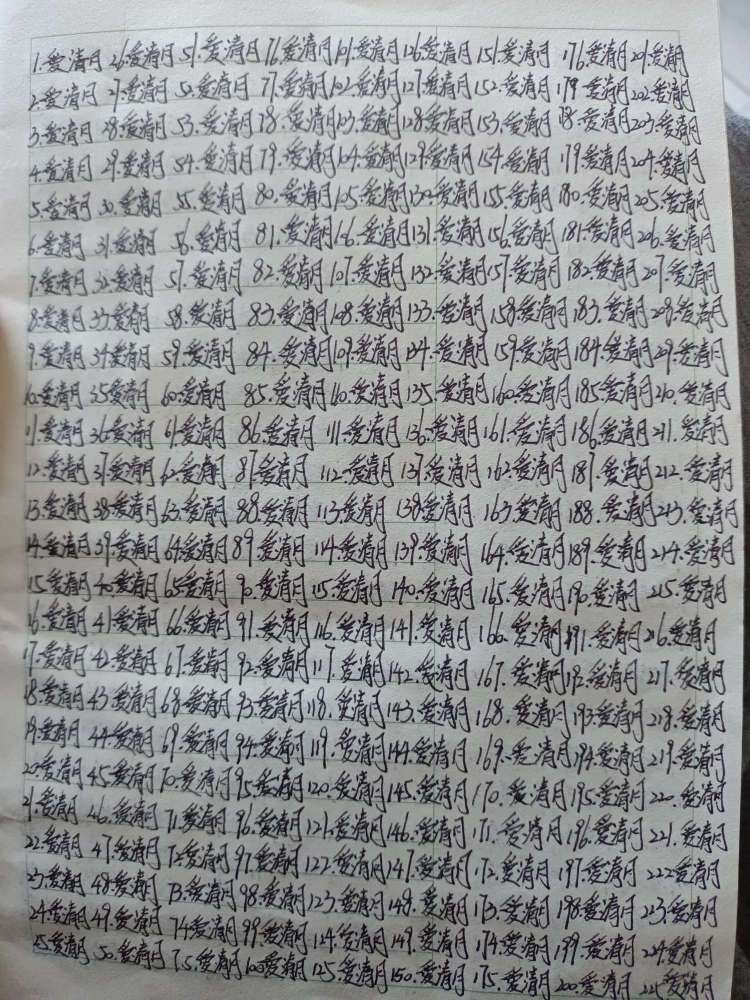 1.爱清月 26.爱清月 51.爱清月 76.爱清月 101.爱清月 126.爱清月 151.爱清月 176.爱清月 201.爱清月
2.爱清月 27.爱清月 52.爱清月 77.爱清月 102.爱清月 127.爱清月 152.爱清月 179.爱清月 202.爱清月
3.爱清月 28.爱清月 53.爱清月 78.爱清月 103.爱清月 128.爱清月 153.爱清月 178.爱清月 203.爱清月
4.爱清月 29.爱清月 54.爱清月 79.爱清月 104.爱清月 129.爱清月 154.爱清月 179.爱清月 204.爱清月
5.爱清月 30.爱清月 55.爱清月 80.爱清月 105.爱清月 130.爱清月 155.爱清月 180.爱清月 205.爱清月
6.爱清月 31.爱清月 56.爱清月 81.爱清月 106.爱清月 131.爱清月 156.爱清月 181.爱清月 206.爱清月
7.爱清月 32.爱清月 57.爱清月 82.爱清月 107.爱清月 132.爱清月 157.爱清月 182.爱清月 207.爱清月
8.爱清月 33.爱清月 58.爱清月 83.爱清月 108.爱清月 133.爱清月 158.爱清月 183.爱清月 208.爱清月
9.爱清月 34.爱清月 59.爱清月 84.爱清月 109.爱清月 134.爱清月 159.爱清月 184.爱清月 209.爱清月
10.爱清月 35.爱清月 60.爱清月 85.爱清月 110.爱清月 135.爱清月 160.爱清月 185.爱清月 210.爱清月
11.爱清月 36.爱清月 61.爱清月 86.爱清月 111.爱清月 136.爱清月 161.爱清月 186.爱清月 211.爱清月
12.爱清月 37.爱清月 62.爱清月 87.爱清月 112.爱清月 137.爱清月 162.爱清月 187.爱清月 212.爱清月
13.爱清月 38.爱清月 63.爱清月 88.爱清月 113.爱清月 138.爱清月 163.爱清月 188.爱清月 213.爱清月
14.爱清月 39.爱清月 64.爱清月 89.爱清月 114.爱清月 139.爱清月 164.爱清月 189.爱清月 214.爱清月
15.爱清月 40.爱清月 65.爱清月 90.爱清月 115.爱清月 140.爱清月 165.爱清月 190.爱清月 215.爱清月
16.爱清月 41.爱清月 66.爱清月 91.爱清月 116.爱清月 141.爱清月 166.爱清月 191.爱清月 216.爱清月
17.爱清月 42.爱清月 67.爱清月 92.爱清月 117.爱清月 142.爱清月 167.爱清月 192.爱清月 217.爱清月
18.爱清月 43.爱清月 68.爱清月 93.爱清月 118.爱清月 143.爱清月 168.爱清月 193.爱清月 218.爱清月
19.爱清月 44.爱清月 69.爱清月 94.爱清月 119.爱清月 144.爱清月 169.爱清月 194.爱清月 219.爱清月
20.爱清月 45.爱清月 70.爱清月 95.爱清月 120.爱清月 145.爱清月 170.爱清月 195.爱清月 220.爱清月
21.爱清月 46.爱清月 71.爱清月 96.爱清月 121.爱清月 146.爱清月 171.爱清月 196.爱清月 221.爱清月
22.爱清月 47.爱清月 72.爱清月 97.爱清月 122.爱清月 147.爱清月 172.爱清月 197.爱清月 222.爱清月
23.爱清月 48.爱清月 73.爱清月 98.爱清月 123.爱清月 148.爱清月 173.爱清月 198.爱清月 223.爱清月
24.爱清月 49.爱清月 74.爱清月 99.爱清月 124.爱清月 149.爱清月 174.爱清月 199.爱清月 224.爱清月
25.爱清月 50.爱清月 75.爱清月 100.爱清月 125.爱清月 150.爱清月 175.爱清月 200.爱清月 225.爱清月